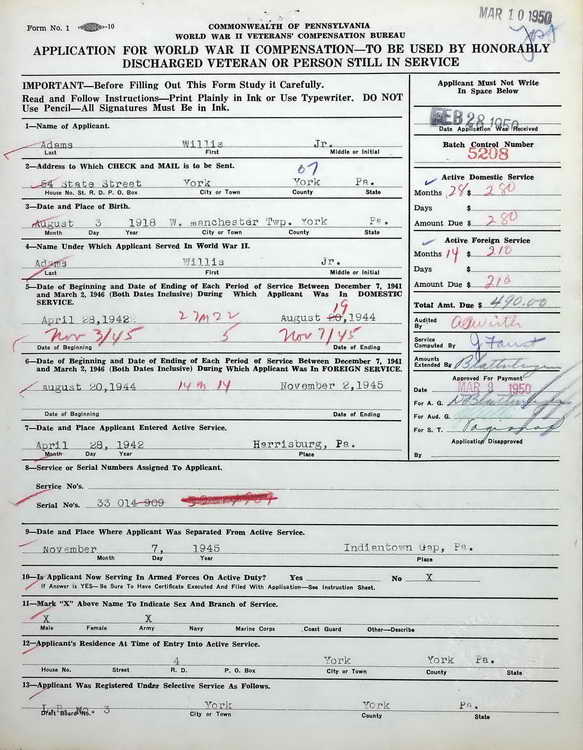 Form No. 1 -10
COMMONWEALTH OF PENNSYLVANIA
WORLD WAR II VETERANS' COMPENSATION BUREAU
MAR 10 1950
APPLICATION FOR WORLD WAR II COMPENSATION—TO BE USED BY HONORABLY
DISCHARGED VETERAN OR PERSON STILL IN SERVICE
IMPORTANT—Before Filling Out This Form Study it Carefully.
Read and Follow Instructions—Print Plainly in Ink or Use Typewriter. DO NOT
Use Pencil—All Signatures Must Be in Ink.
1—Name of Applicant.
Adams Willis Jr.
Last First Middle or Initial
2—Address to Which CHECK and MAIL is to be Sent.
67
54 State Street York York Pa.
House No. St. R. D. P. O. Box City or Town County State
3—Date and Place of Birth.
August 3 1918 W. manchester Twp. York Pa.
Month Day Year City or Town County State
4—Name Under Which Applicant Served In World War II.
Adams Willis Jr.
Last First Middle or Initial
5—Date of Beginning and Date of Ending of Each Period of Service Between December 7, 1941
and March 2, 1946 (Both Dates Inclusive) During Which Applicant Was In DOMESTIC
SERVICE.
19
April 28,1942 27M22 August 20,1944
Nov 3/45 5 Nov 7/45
Date of Beginning Date of Ending
6—Date of Beginning and Date of Ending of Each Period of Service Between December 7, 1941
and March 2, 1946 (Both Dates Inclusive) During Which Applicant Was In FOREIGN SERVICE.
august 20,1944 14 m 14 November 2,1945
Date of Beginning Date of Ending
7—Date and Place Applicant Entered Active Service.
April 28, 1942 Harrisburg, Pa.
Month Day Year Place
8—Service or Serial Numbers Assigned To Applicant.
Service No's.
Serial No's. 33 014 909
9—Date and Place Where Applicant Was Separated From Active Service.
November 7, 1945 Indiantown Gap, Pa.
Month Day Year Place
10—Is Applicant Now Serving In Armed Forces On Active Duty? Yes No X
If Answer is YES—Be Sure To Have Certificate Executed And Filed With Application—See Instruction Sheet.
11—Mark "X" Above Name To Indicate Sex And Branch of Service.
X X
Male Female Army Navy Marine Corps Coast Guard Other—Describe
12—Applicant's Residence At Time of Entry Into Active Service.
4 York York Pa.
House No. Street R. D. P. O. Box City or Town County State
13—Applicant Was Registered Under Selective Service As Follows.
L.B. No. 3 York York Pa.
Draft Board No. City or Town County State
Applicant Must Not Write
In Space Below
FEB 28 1950
Date Application Was Received
Batch Control Number
5208
Active Domestic Service
Months 28 $ 280
Days $
Amount Due $ 280
Active Foreign Service
Months 14 $ 210
Days $
Amount Due $ 210
Total Amt. Due $ 490.00
Audited
By
Service
Computed By J Faust
Amounts
Extended By
Approved For Payment
Date MAR 8 1950
For A. G.
For Aud. G.
For S. T.
Application Disapproved
By